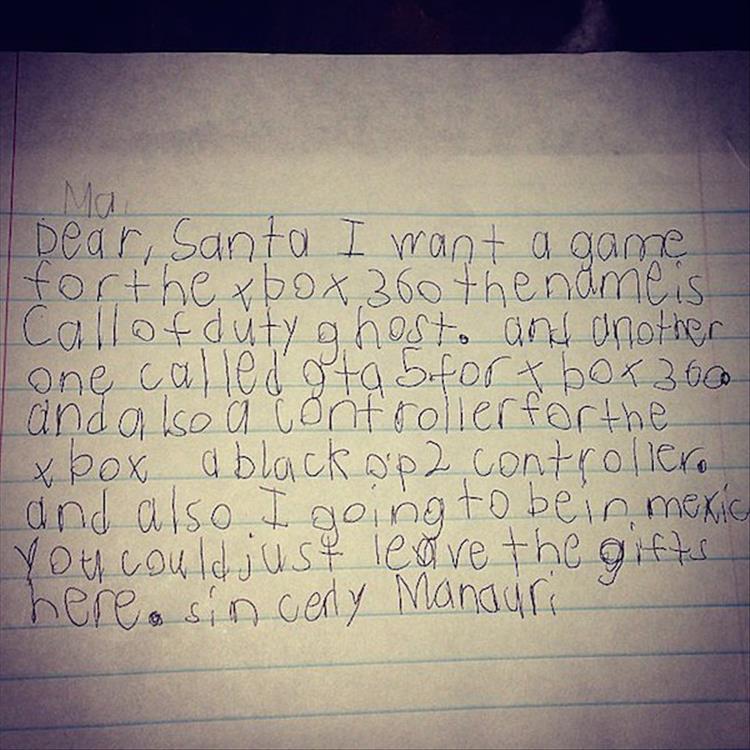 Ma
Dear, Santa I want a game
for the xbox 360 the name is
Call of duty ghost. and another
one called gta 5 for xbox 360
and also a controller for the
xbox a black op 2 controller.
and also I going to be in mexic
you could just leave the gifts
here. sin cerly Manauri